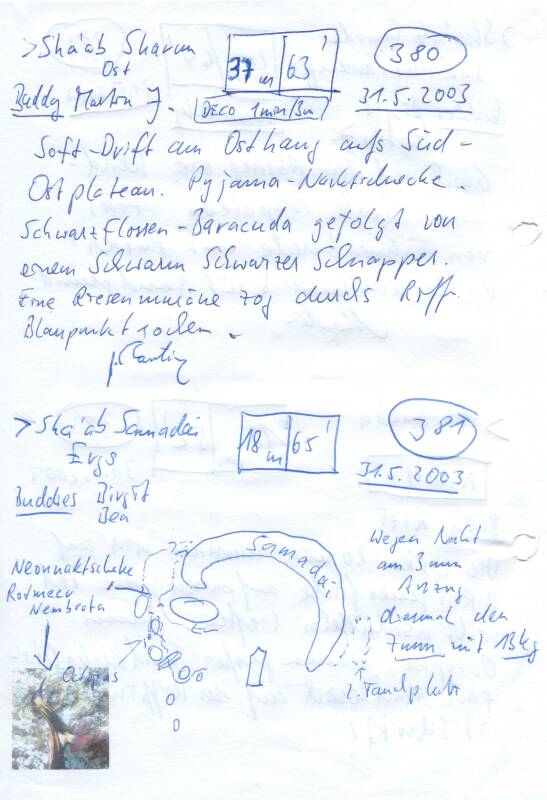 > Sha'ab Sharm
Ost
37m 63'
380
Buddy Martin J.
DECO 1min/3m
31.5.2003
Soft-Drift am Osthang aufs Süd-
Ostplateau. Pyjama-Nacktschnecke
Schwarzflossen-Baracuda gefolgt von
einem Schwarm Schwarzer Schnapper.
Eine Riesenmuräne zog durchs Riff.
Blaupunktrochen.
> Sha'ab Samadai
Ergs
18m 65'
381
31.5.2003
Buddies Birgit
Bea
Samadai
Wegen Nacht
am 3mm
Anzug
diesmal den
7mm mit 13kg
Neonnaktscheke
Rotmeer
Nembrota
Octopus
2. Tauchplatz